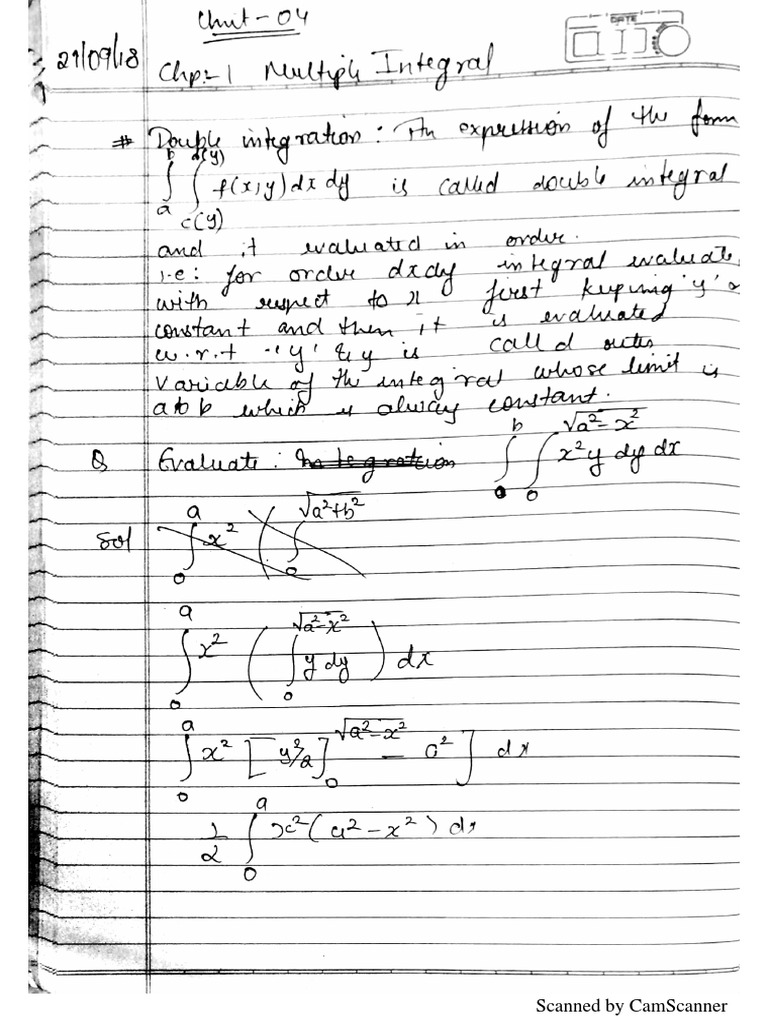 Unit-04
DATE
21/09/18
Chp:-1 Multiple Integral
# Double integration: An expression of the form
∫_a^b ∫_{c(y)}^{d(y)} f(x,y) dx dy is called double integral
and it evaluated in order.
i.e: for order dxdy integral evaluate
with respect to x first keeping 'y' a
constant and then it is evaluated
w.r.t 'y' & y is called outer
variable of the integral whose limit is
a to b which is always constant.
Q Evaluate: Integration ∫_0^b ∫_0^{√a²-x²} x²y dy dx
Sol ∫_0^a x² ( ∫_0^{√a²+b²}
∫_0^a x² ( ∫_0^{√a²-x²} y dy ) dx
∫_0^a x² [ y²/2 ]_0^{√a²-x²} - 0² ] dx
1/2 ∫_0^a x² (a²-x²) dx
Scanned by CamScanner